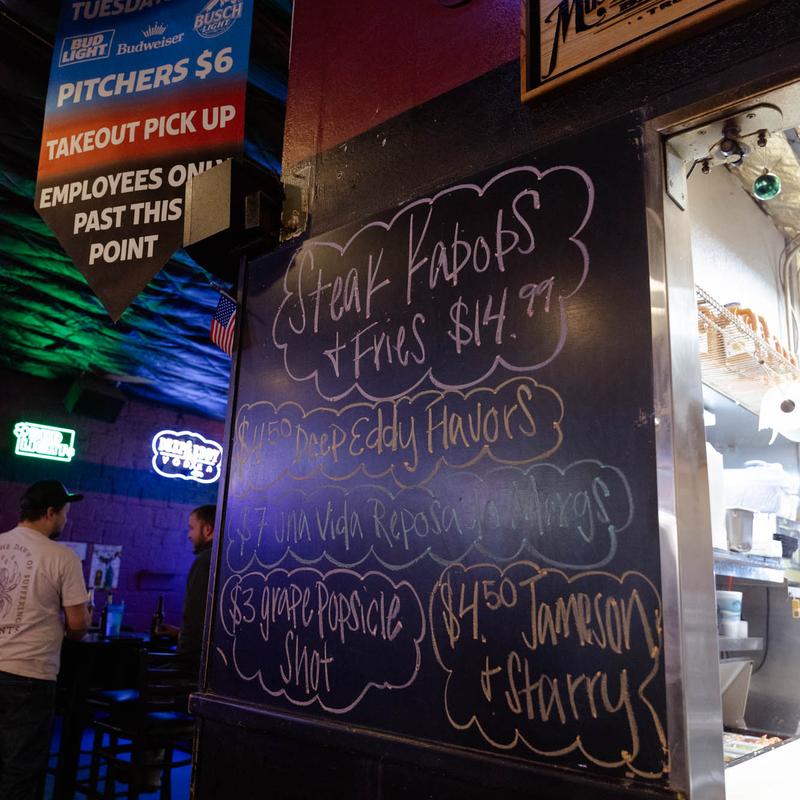 TUESDAY
BUD LIGHT
Budweiser
BUSCH LIGHT
PITCHERS $6
TAKEOUT PICK UP
EMPLOYEES ONLY
PAST THIS
POINT
Steak Kabobs
+ Fries $14.99
$4.50 Deep Eddy Flavors
$7 Una Vida Reposado Margs
$3 grape Popsicle
Shot
$4.50 Jameson
+ Starry
BUD
LIGHT
DEEP EDDY
VODKA